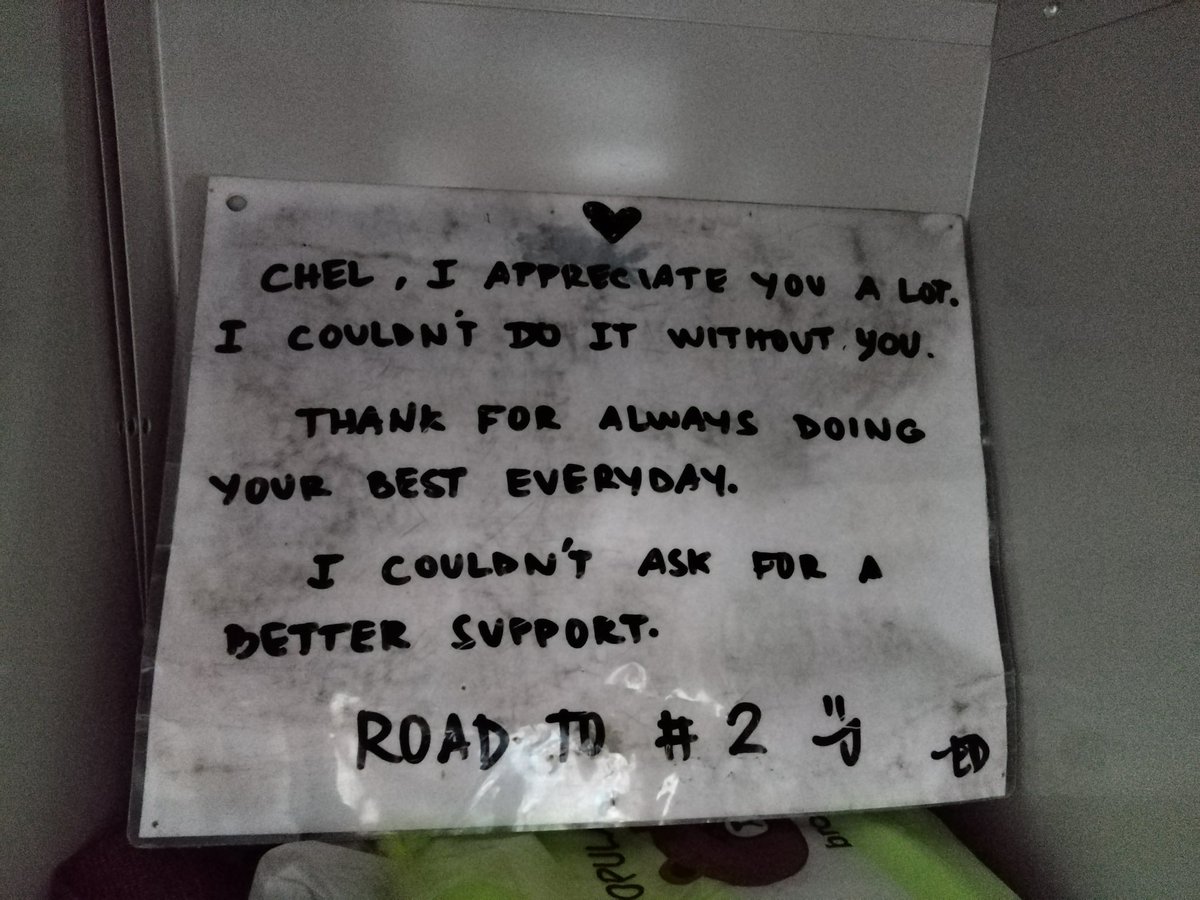 CHEL, I APPRECIATE YOU A LOT.
I COULDN'T DO IT WITHOUT YOU.
THANK FOR ALWAYS DOING
YOUR BEST EVERYDAY.
I COULDN'T ASK FOR A
BETTER SUPPORT.
ROAD TO # 2
-ED